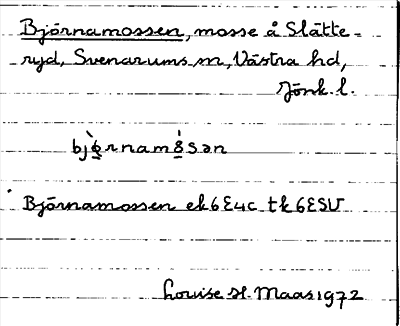 Björnamossen, mosse å Slätte-
ryd, Svenarums sn, Västra hd,
Jönk. l.
bjø̀̀rnam8́sən
Björnamossen ek 6E4c tk 6ESV
Louise H. Maas 1972